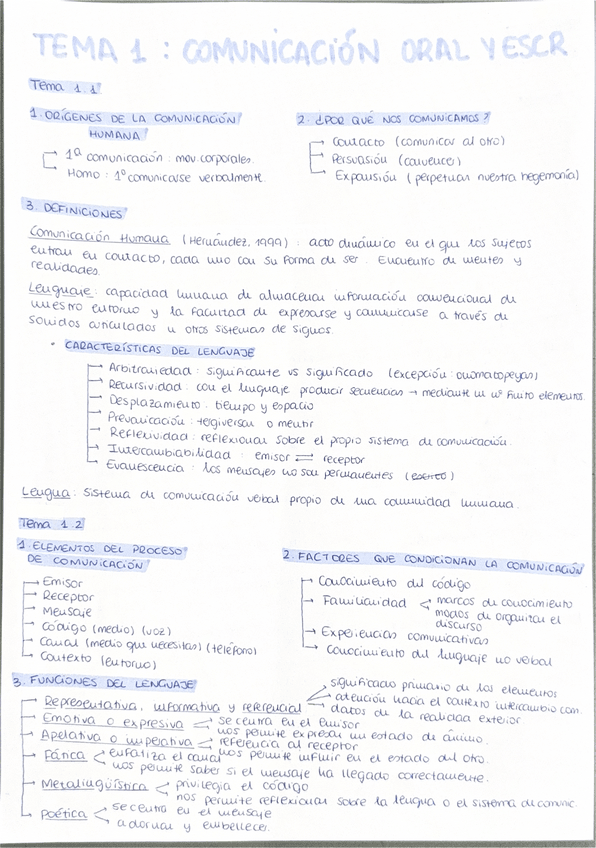 TEMA 1 : COMUNICACIÓN ORAL Y ESCR
Tema 1.1
1. ORÍGENES DE LA COMUNICACIÓN
HUMANA
1ª comunicación : mov. corporales.
Homo : 1º comunicarse verbalmente.
2. ¿POR QUÉ NOS COMUNICAMOS?
Contacto (comunicar al otro)
Persuasión (convencer)
Expansión (perpetuar nuestra hegemonía)
3. DEFINICIONES
Comunicación Humana (Hernández, 1999) : acto dinámico en el que los sujetos
entran en contacto, cada uno con su forma de ser. Encuentro de mentes y
realidades.
Lenguaje : capacidad humana de almacenar información convencional de
nuestro entorno y la facultad de expresarse y comunicarse a través de
sonidos articulados u otros sistemas de signos.
• CARACTERÍSTICAS DEL LENGUAJE
Arbitrariedad : significante vs significado (excepción : onomatopeyas)
Recursividad : con el lenguaje producir secuencias → mediante un nº finito elementos.
Desplazamiento : tiempo y espacio
Prevaricación : tergiversar o mentir
Reflexividad : reflexionar sobre el propio sistema de comunicación.
Intercambiabilidad : emisor ⇌ receptor
Evanescencia : los mensajes no son permanentes (escrito)
Lengua : Sistema de comunicación verbal propio de una comunidad humana.
Tema 1.2
1. ELEMENTOS DEL PROCESO
DE COMUNICACIÓN
Emisor
Receptor
Mensaje
Código (medio) (voz)
Canal (medio que necesitas) (teléfono)
Contexto (entorno)
2. FACTORES QUE CONDICIONAN LA COMUNICACIÓN
Conocimiento del código
Familiaridad < marcos de conocimiento
modos de organizar el
discurso
Experiencias comunicativas
Conocimiento del lenguaje no verbal
3. FUNCIONES DEL LENGUAJE
Representativa, informativa y referencial
significado primario de los elementos
atención hacia el contexto intercambio com.
datos de la realidad exterior.
Emotiva o expresiva < se centra en el emisor
nos permite expresar un estado de ánimo.
Apelativa o imperativa < referencia al receptor
nos permite influir en el estado del otro.
Fática < enfatiza el canal
nos permite saber si el mensaje ha llegado correctamente.
Metalingüística < privilegia el código
nos permite reflexionar sobre la lengua o el sistema de comunic.
Poética < se centra en el mensaje
adornar y embellecer.